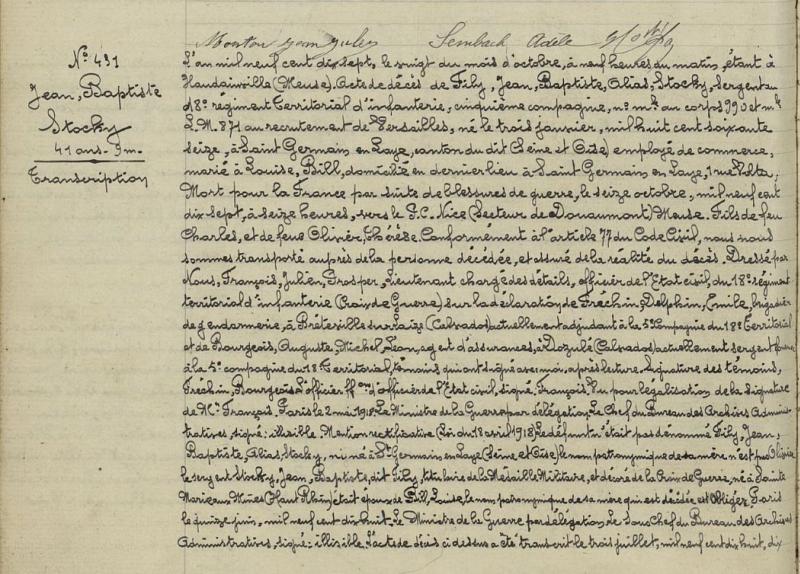 Monton Jean Jules Sembach Adèle
N° 431
Jean, Baptiste
Stocky
41 ans - 9 m.
Transcription
L'an mil neuf cent dix-sept, le vingt du mois d'octobre, à neuf heures du matin, étant à
Haudainville (Meuse). Acte de décès de Fily, Jean, Baptiste, Alias, Stocky, Sergent au
18e régiment Territorial d'infanterie, cinquième compagnie, n° mle au corps 990 et mle
L.M. 871 au recrutement de Versailles, né le trois janvier, mil huit cent soixante
seize, à Saint Germain en Laye, canton du dit (Seine et Oise) employé de commerce,
marié à Louise, Bill, domicilié en dernier lieu à Saint Germain en Laye, 1 rue Volta.
Mort pour la France par suite de blessures de guerre, le seize octobre, mil neuf cent
dix-sept, à seize heures, vers le G.C. Nice (Secteur de Douaumont) Meuse. Fils de feu
Charles, et de feue Olivier, Thérèse. Conformément à l'article 77 du Code Civil, nous nous
sommes transporté auprès de la personne décédée, et assuré de la réalité du décès. Dressé par
Nous, François, Julien, Prosper, Lieutenant chargé des détails, officier de l'Etat civil, du 18e régiment
territorial d'infanterie (Croix de Guerre) sur la déclaration, de Fréchin, Delphin, Emile, brigadier
de gendarmerie, à Bretteville sur Laize (Calvados) actuellement adjudant à la 5e Compagnie du 18e Territorial
et de Bourgeois, Auguste, Michel, Jean, agent d'assurances, à Dozulé (Calvados) actuellement sergent
à la 5e compagnie du 18e Territorial, témoins qui ont signé avec moi, après lecture. Signature des témoins,
Fréchin, Bourgeois. L'officier ff.ons d'officier de l'Etat civil, signé, François. Vu pour légalisation de la Signature
de Mr. François, Paris le 2 mai 1918. Le Ministre de la Guerre par délégation, Le Chef du Bureau des Archives Adminis-
tratives, signé: illisible. Mention rectificative (Loi du 18 avril 1918) Le défunt n'était pas dénommé Fily, Jean,
Baptiste, Alias, Stocky, ni né à St Germain en Laye (Seine et Oise) le nom patronymique de sa mère n'est pas Olivier
le sergent Stocky, Jean, Baptiste, dit Fily, titulaire de la Médaille Militaire, et décoré de la Croix de Guerre, né à Sainte
Marie aux Mines (Haut Rhin) était époux de Bill, Louise, le nom patronymique de sa mère qui est décédée est Obliger. Paris
le quinze juin, mil neuf cent dix huit. Le Ministre de la Guerre par délégation, Le Sous Chef du Bureau des Archives
Administratives, signé: illisible. L'acte de décès ci dessus a été transcrit le trois juillet, mil neuf cent dix huit, dix